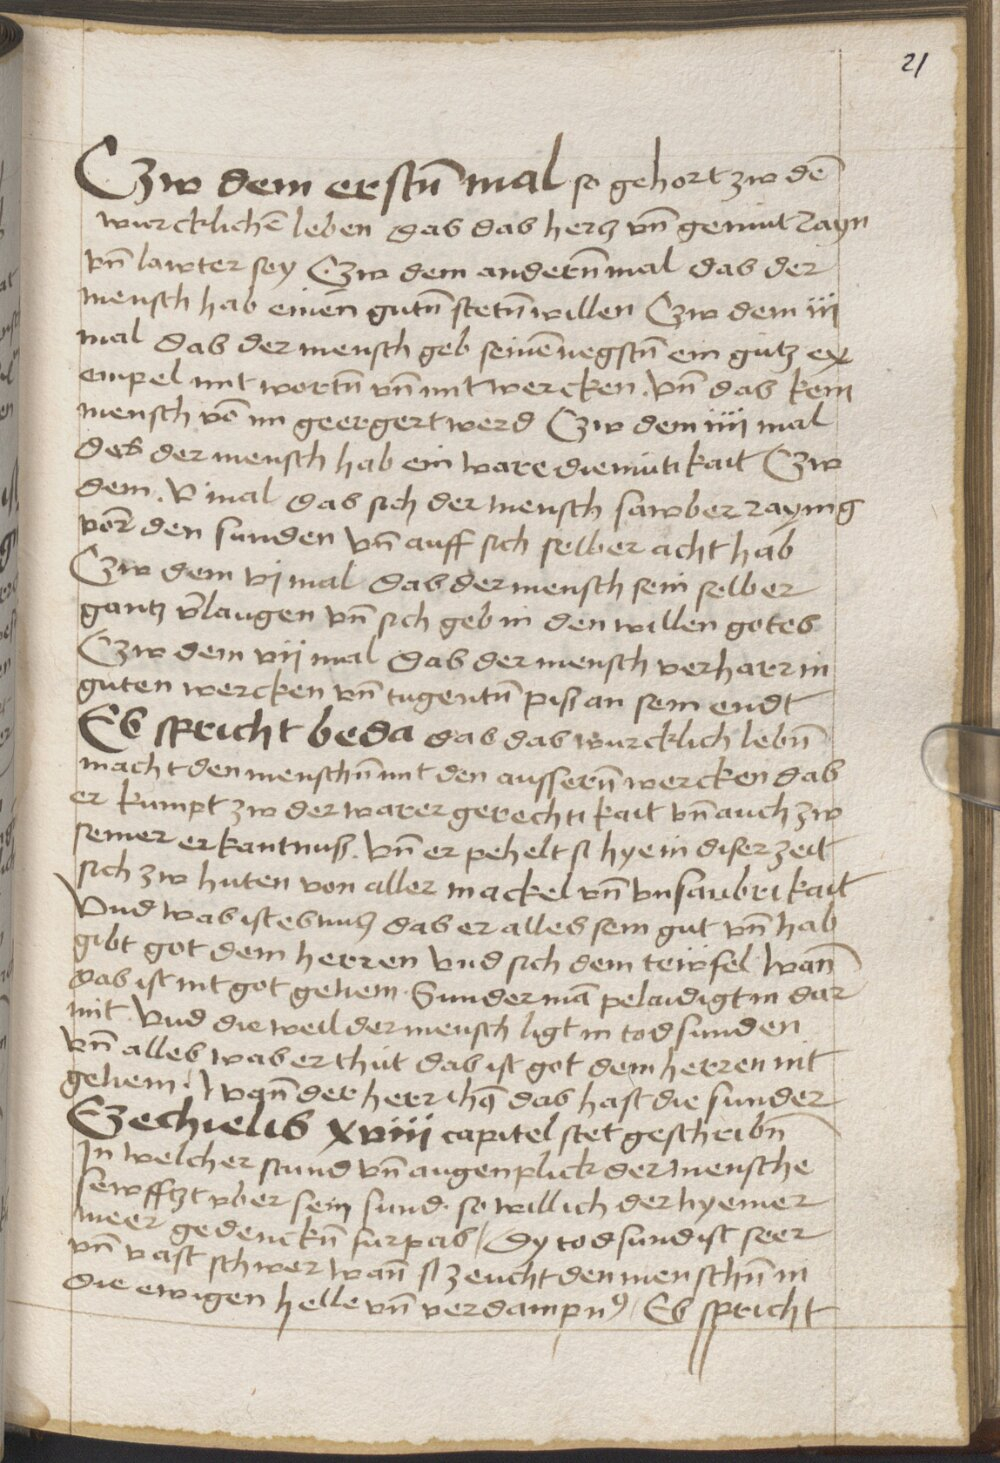 21
Czw dem erstn̄ mal so gehort zw dē
wurcklichē leben das das hercz vn̄ gemut rayn
vn̄ lawter sey Czw dem andern̄ mal das der
mensch hab einen gutn̄ stetn̄ willen Czw dem iij
mal das der mensch geb seinē negstn̄ ein gutz ex
empel mit wortn̄ vn̄ mit wercken. vn̄ das kein
mensch vō im geergert werd Czw dem iiij mal
das der mensch hab ein ware diemutikait Czw
dem. v mal das sich der mensch sawber raynig
vor den sunden vn̄ auff sich selber acht hab
Czw dem vj mal das der mensch sein selber
gantz v̄laugen vn̄ sich geb in den willen gotes
Czw dem vij mal das der mensch verharr in
guten wercken vn̄ tugentn̄ piß an sein endt
Es spricht beda das das wurcklich lebn̄
macht den menschn̄ mit den ausseren̄ wercken das
er kumpt zw der warer gerechtikait vn̄ auch zw
seiner erkantnuß. vn̄ er pehelt si hye in diser zeit
sich zw huten von aller mackel vn̄ vnsaubrikait
Vnd was ist es nucz das er alles sein gut vn̄ hab
gibt got dem herren vnd sich dem tewfel Wan̄
das ist nit got genem. Sunder mā pelaidigt in dar
mit. Vnd die weil der mensch ligt in tod sunden
vn̄ alles was er thut das ist got dem herren nit
genem. Wan̄ der herr ihs das hast die sunder
Ezechielis xviij capitel stet geschribn̄
In welcher stund vn̄ augenplick der mensche
sewfftzt vber sein sund. so will ich der nyemer
meer gedenckn̄ furpas / Dy tod sund ist seer
vn̄ vast schwer wan̄ si zeucht den menschn̄ in
die ewigen helle vn̄ verdampnꝰ / Es spricht